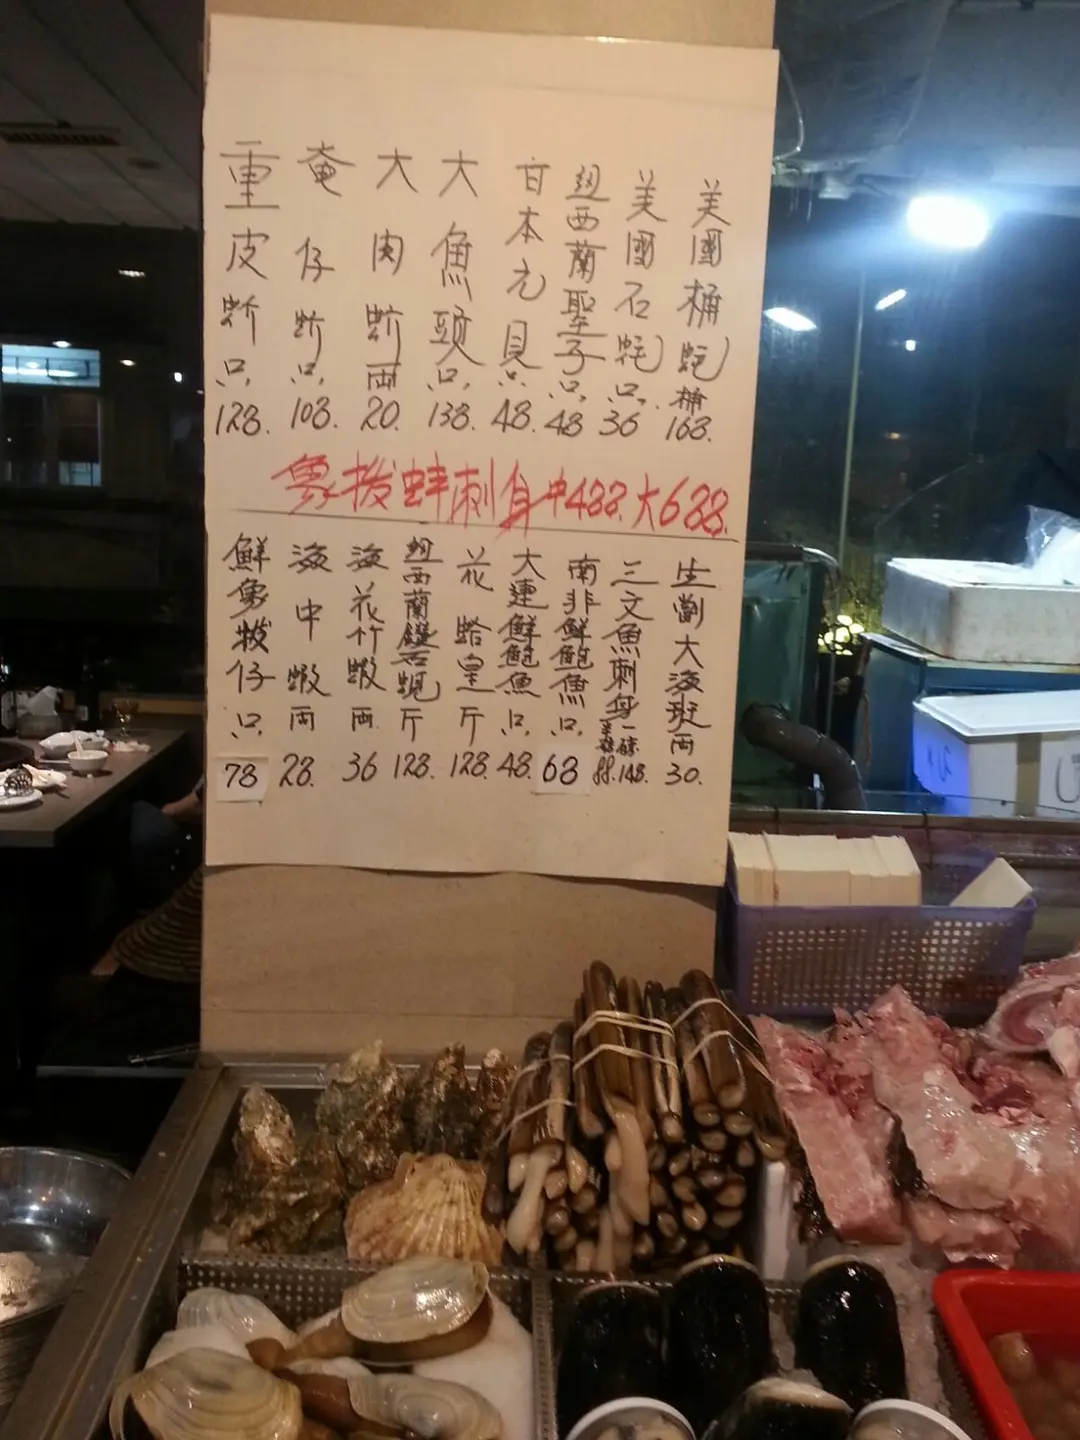 美國桶蚝桶168.
美國石蚝只.36
紐西蘭聖子只.48
日本元貝只.48.
大魚頭只.138.
大肉蚧両20.
奄仔蚧只.108.
重皮蚧只.128.
象拔蚌刺身中488.大688.
生劏大海斑両30.
三文魚刺身一碟148.半碟88.
南非鮮鮑魚只.68
大連鮮鮑魚只.48.
花蛤皇斤128.
紐西蘭鑽石蜆斤128.
海花竹蝦両36
海中蝦両28.
鮮象拔仔只.78